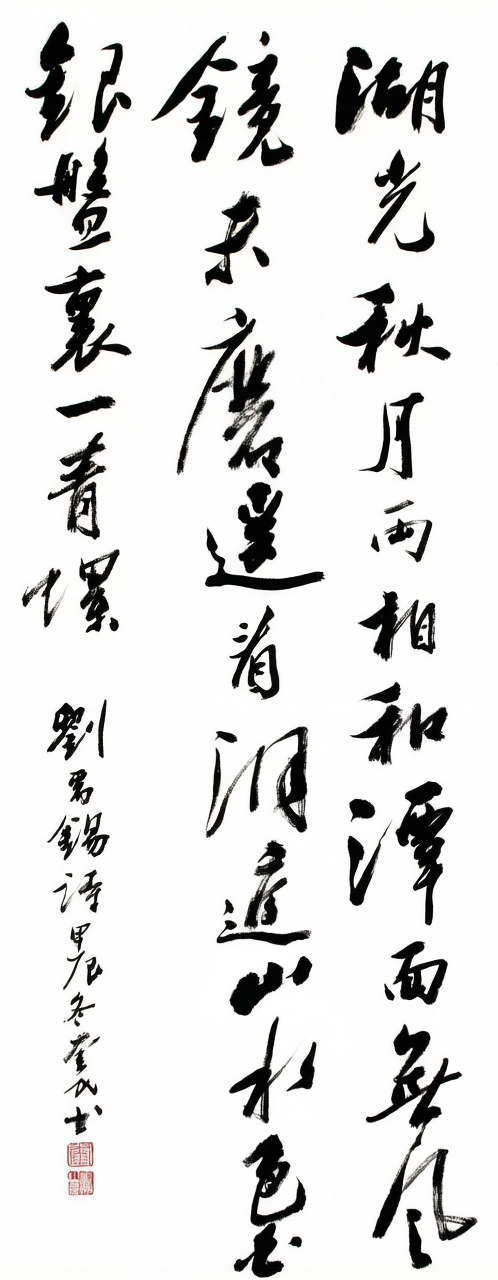 湖光秋月兩相和潭面無風
鏡未磨遥看洞庭山水色白
銀盤裏一青螺
劉禹錫詩甲辰冬書